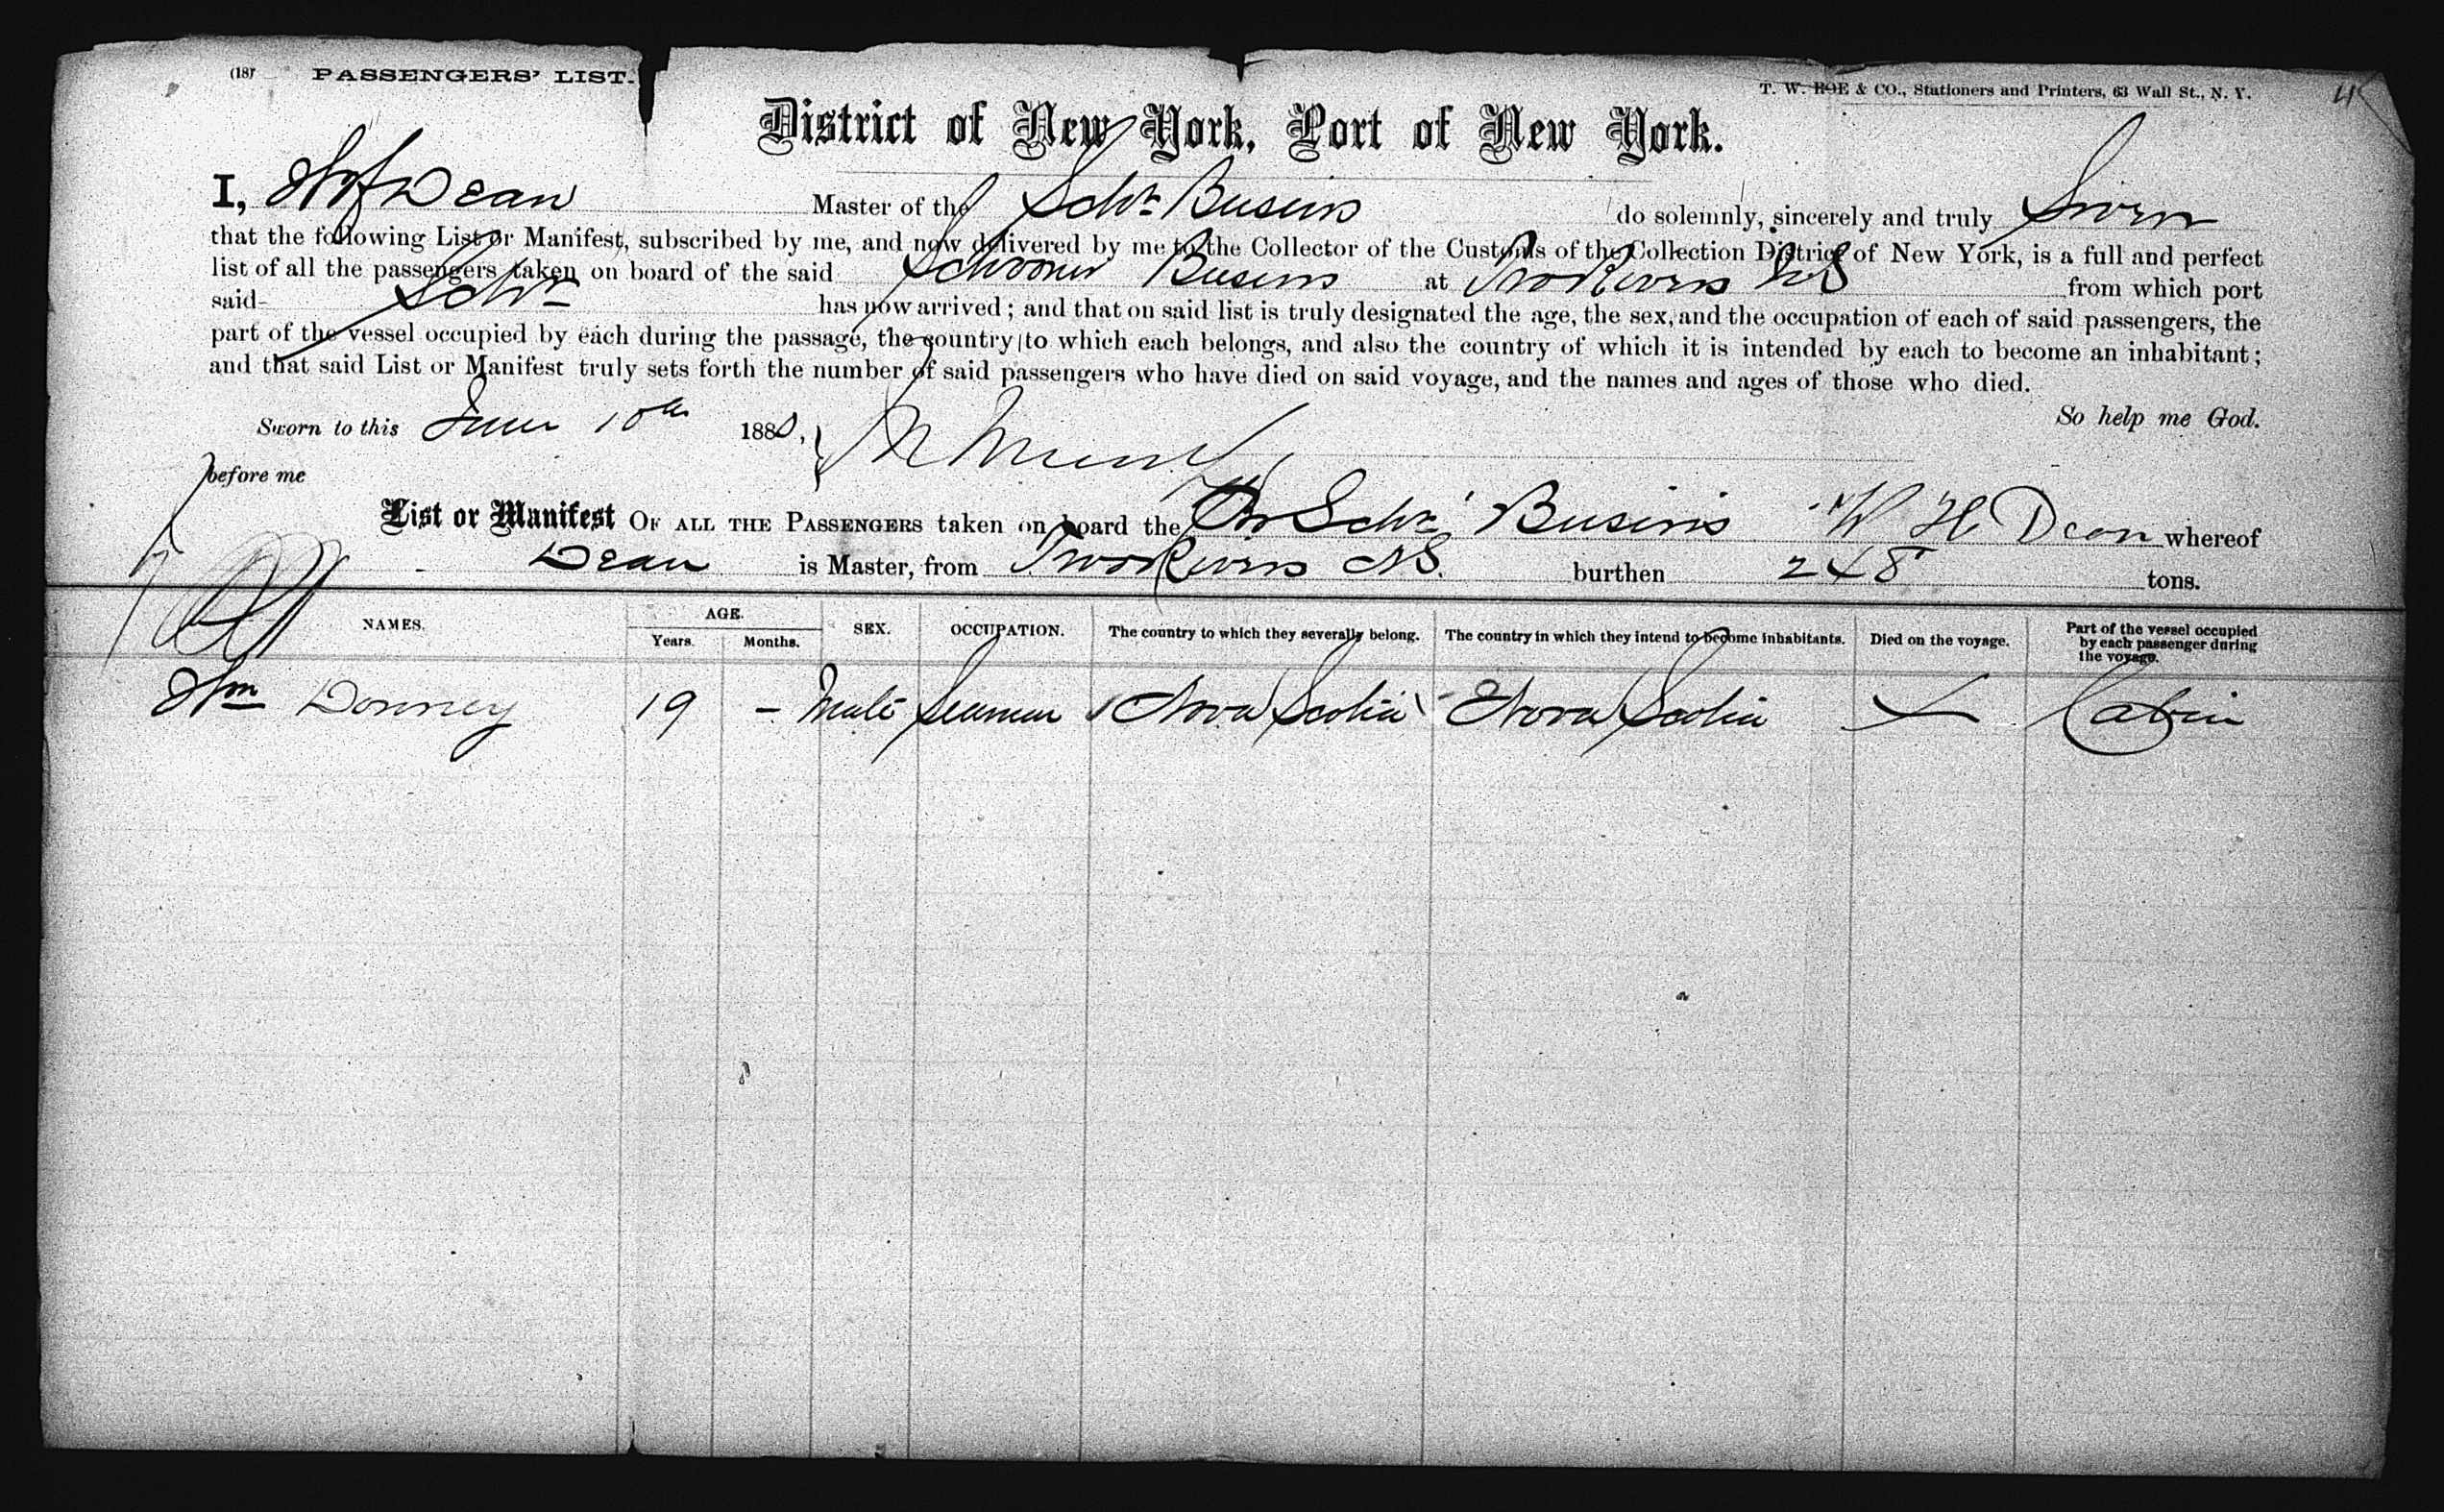 (18) PASSENGERS' LIST.
T. W. ROE & CO., Stationers and Printers, 63 Wall St., N. Y.
District of New York, Port of New York.
I, Dean Master of the Schr Busiris do solemnly, sincerely and truly Swear
that the following List or Manifest, subscribed by me, and now delivered by me to the Collector of the Customs of the Collection District of New York, is a full and perfect
list of all the passengers taken on board of the said Schooner Busiris at Two Rivers NS from which port
said Schr has now arrived; and that on said list is truly designated the age, the sex, and the occupation of each of said passengers, the
part of the vessel occupied by each during the passage, the country to which each belongs, and also the country of which it is intended by each to become an inhabitant;
and that said List or Manifest truly sets forth the number of said passengers who have died on said voyage, and the names and ages of those who died.
So help me God.
Sworn to this June 10th 1880,
before me
List or Manifest OF ALL THE PASSENGERS taken on board the Br Schr Busiris W H Dean whereof
Dean is Master, from Two Rivers NS. burthen 248 tons.
NAMES. AGE. Years. Months. SEX. OCCUPATION. The country to which they severally belong. The country in which they intend to become inhabitants. Died on the voyage. Part of the vessel occupied by each passenger during the voyage.
Wm Donney 19 - Male Seaman Nova Scotia Nova Scotia Cabin